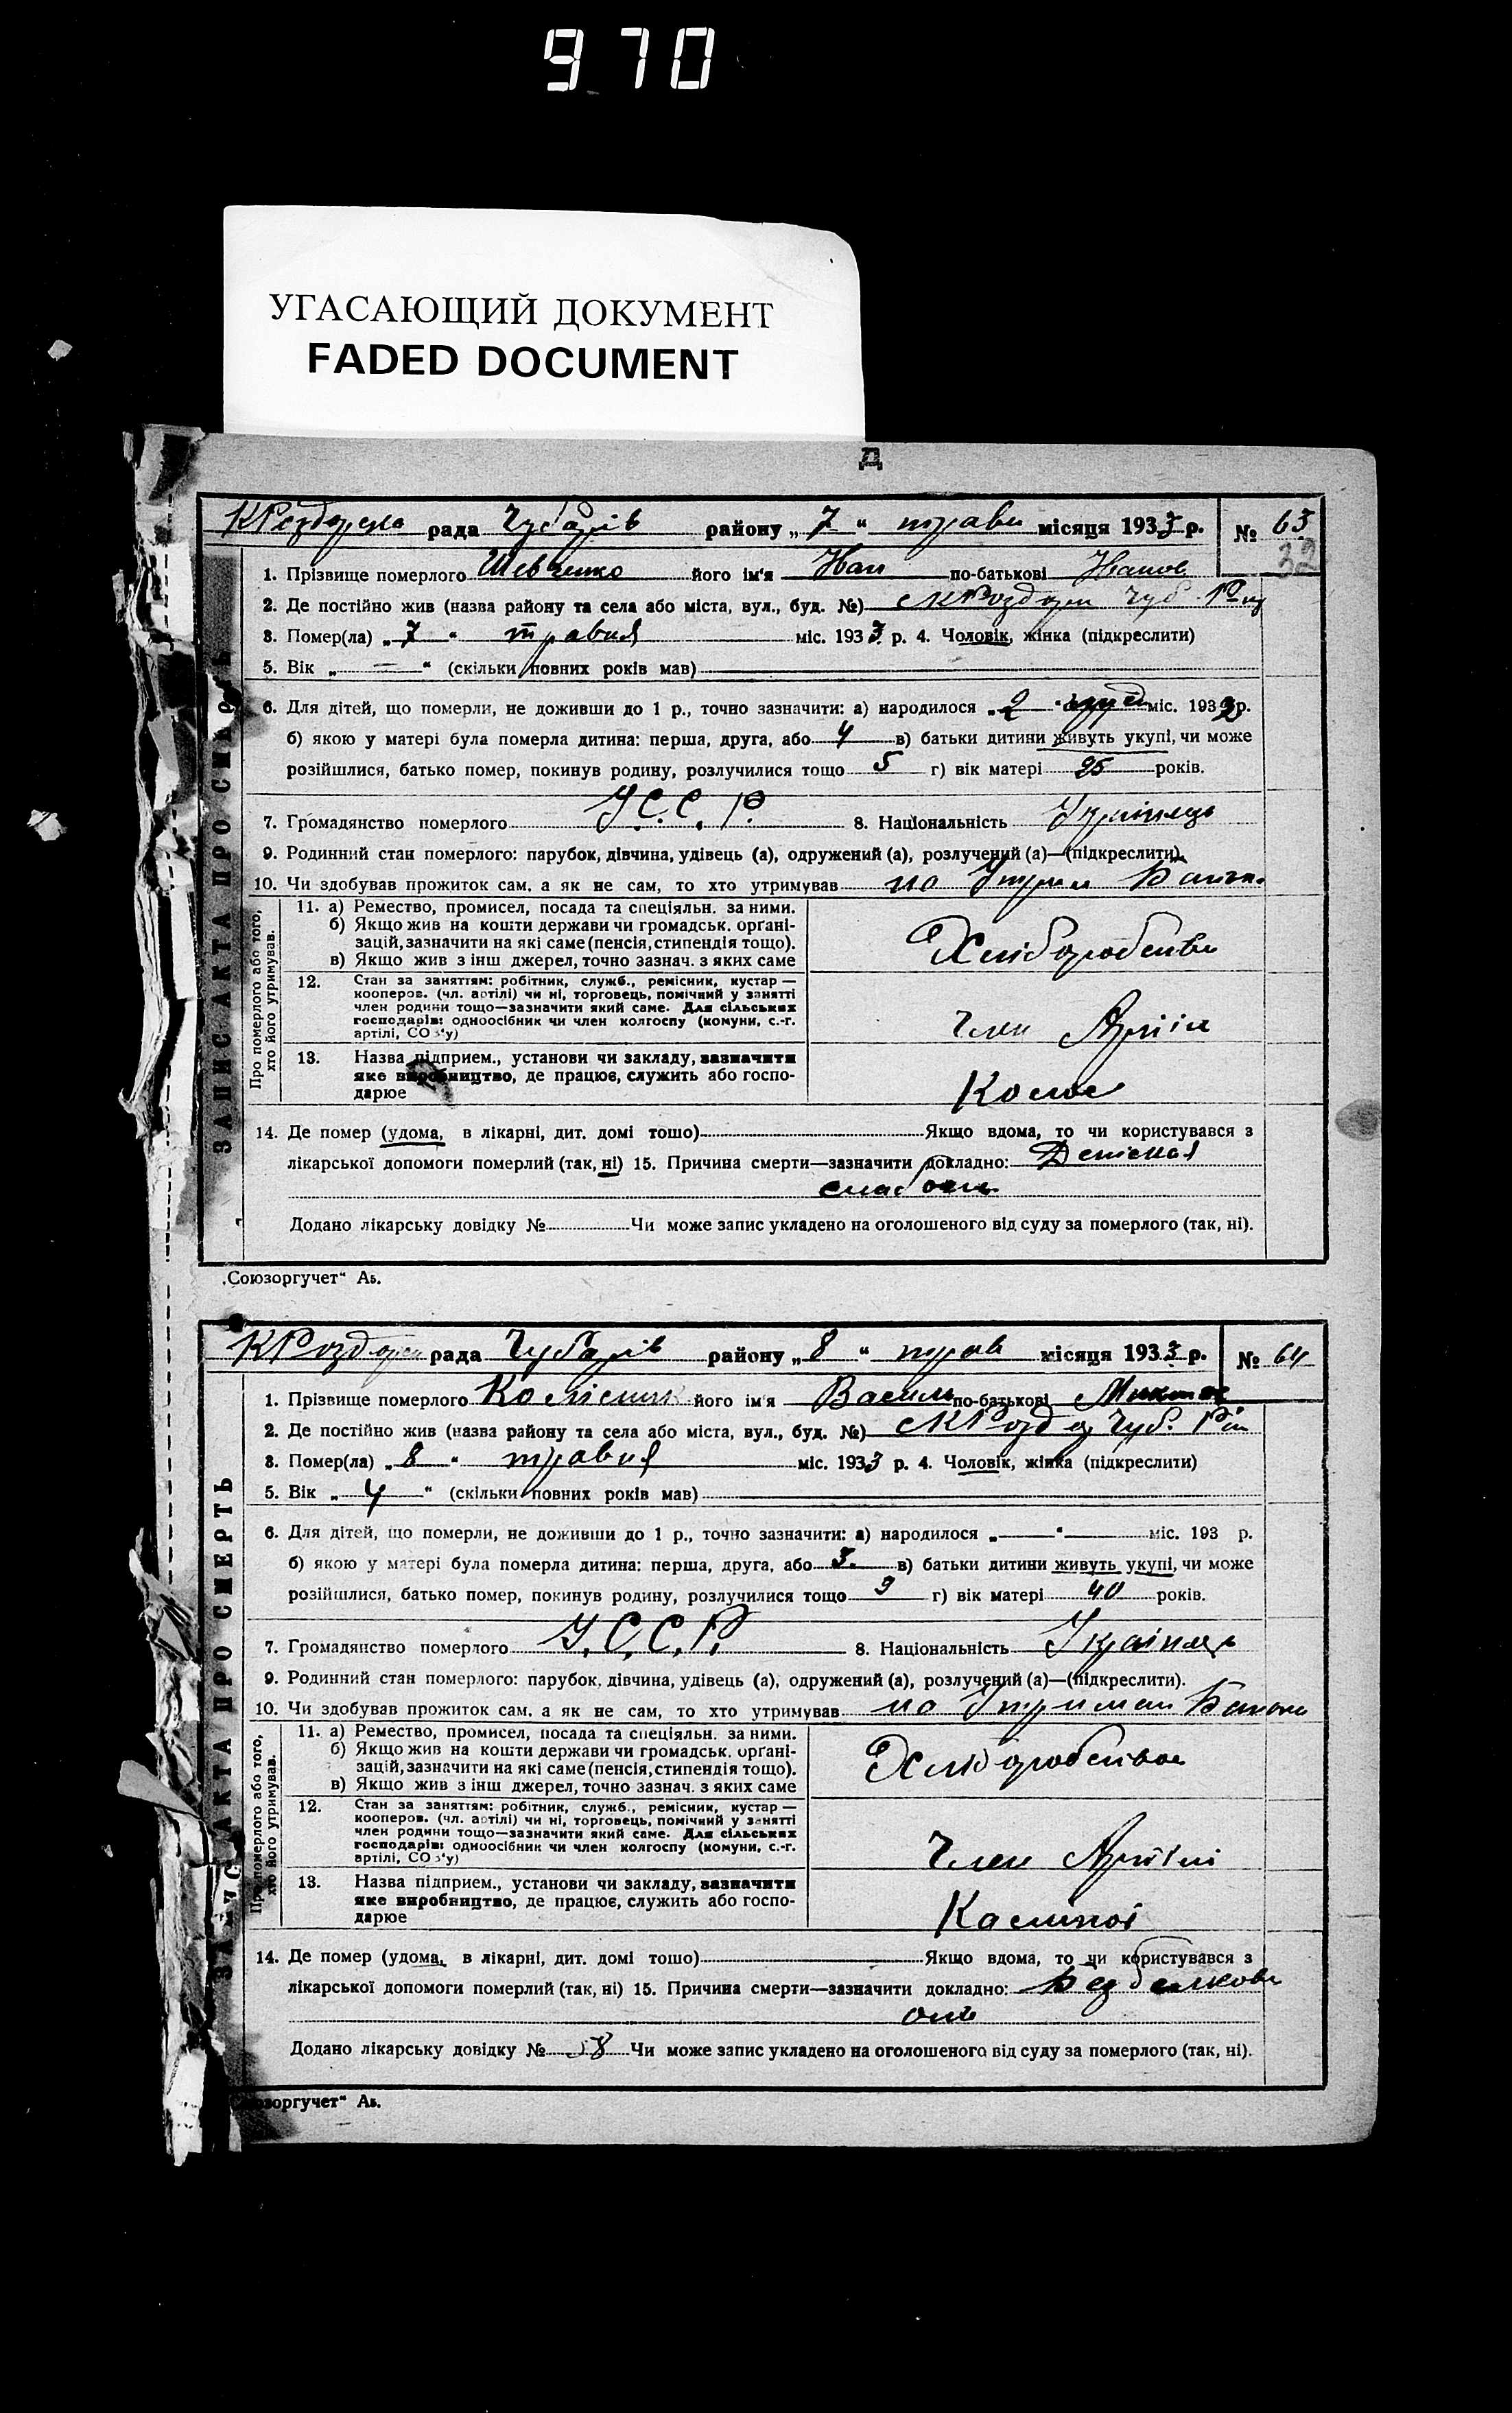 970
УГАСАЮЩИЙ ДОКУМЕНТ
FADED DOCUMENT
Д
рада Чубарів району „ 7 “ трав місяця 1933 р. № 63
32
ЗАПИС АКТА ПРО СМЕРТЬ
1. Прізвище померлого Шевченко його ім'я Іван по-батькові Іванов
2. Де постійно жив (назва району та села або міста, вул., буд. №) Чуб.
3. Помер(ла) „ 7 “ травня міс. 1933 р. 4. Чоловік, жінка (підкреслити)
5. Вік „ — “ (скільки повних років мав)
6. Для дітей, що померли, не доживши до 1 р., точно зазначити: а) народилося „ 2 “ міс. 193 р.
б) якою у матері була померла дитина: перша, друга, або 4 в) батьки дитини живуть укупі, чи може
розійшлися, батько помер, покинув родину, розлучилися тощо 5 г) вік матері 25 років.
7. Громадянство померлого У.С.С.Р. 8. Національність Українець
9. Родинний стан померлого: парубок, дівчина, удівець (а), одружений (а), розлучений (а)—(підкреслити).
10. Чи здобував прожиток сам, а як не сам, то хто утримував на Утрим Батьк
Про померлого або того, хто його утримував.
11. а) Ремество, промисел, посада та спеціяльн. за ними.
б) Якщо жив на кошти держави чи громадськ. органі-
зацій, зазначити на які саме (пенсія, стипендія тощо).
в) Якщо жив з інш джерел, точно зазнач. з яких саме
Хліборобство
12. Стан за заняттям: робітник, служб., ремісник, кустар —
кооперов. (чл. артілі) чи ні, торговець, помічний у занятті
член родини тощо—зазначити який саме. Для сільських
господарів: одноосібник чи член колгоспу (комуни, с.-г.
артілі, СОЗ'у)
Член Артіл
13. Назва підприєм., установи чи закладу, зазначити
яке виробництво, де працює, служить або госпо-
дарює
Колос
14. Де помер (удома, в лікарні, дит. домі тошо) Якщо вдома, то чи користувався з
лікарської допомоги померлий (так, ні) 15. Причина смерти—зазначити докладно:
слабость
Додано лікарську довідку № Чи може запис укладено на оголошеного від суду за померлого (так, ні).
„Союзоргучет“ Аь.
рада Чубарів району „ 8 “ трав місяця 1933 р. № 64
ЗАПИС АКТА ПРО СМЕРТЬ
1. Прізвище померлого Колісник його ім'я Василь по-батькові
2. Де постійно жив (назва району та села або міста, вул., буд. №) Чуб.
3. Помер(ла) „ 8 “ травня міс. 1933 р. 4. Чоловік, жінка (підкреслити)
5. Вік „ 4 “ (скільки повних років мав)
6. Для дітей, що померли, не доживши до 1 р., точно зазначити: а) народилося „ — “ міс. 193 р.
б) якою у матері була померла дитина: перша, друга, або 3. в) батьки дитини живуть укупі, чи може
розійшлися, батько помер, покинув родину, розлучилися тощо 9 г) вік матері 40 років.
7. Громадянство померлого У.С.С.Р. 8. Національність Українець
9. Родинний стан померлого: парубок, дівчина, удівець (а), одружений (а), розлучений (а)—(підкреслити).
10. Чи здобував прожиток сам, а як не сам, то хто утримував на Утриман Батька
Про померлого або того, хто його утримував.
11. а) Ремество, промисел, посада та спеціяльн. за ними.
б) Якщо жив на кошти держави чи громадськ. органі-
зацій, зазначити на які саме (пенсія, стипендія тощо).
в) Якщо жив з інш джерел, точно зазнач. з яких саме
Хліборобство
12. Стан за заняттям: робітник, служб., ремісник, кустар —
кооперов. (чл. артілі) чи ні, торговець, помічний у занятті
член родини тощо—зазначити який саме. Для сільських
господарів: одноосібник чи член колгоспу (комуни, с.-г.
артілі, СОЗ'у)
Член Артілі
13. Назва підприєм., установи чи закладу, зазначити
яке виробництво, де працює, служить або госпо-
дарює
14. Де помер (удома, в лікарні, дит. домі тошо) Якщо вдома, то чи користувався з
лікарської допомоги померлий (так, ні) 15. Причина смерти—зазначити докладно:
Додано лікарську довідку № 58 Чи може запис укладено на оголошеного від суду за померлого (так, ні).
зоргучет“ Аь.